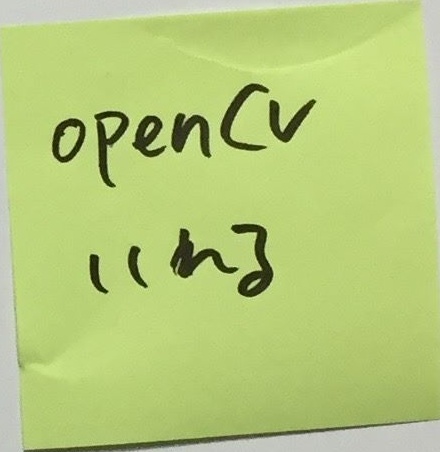 openCV
いれる